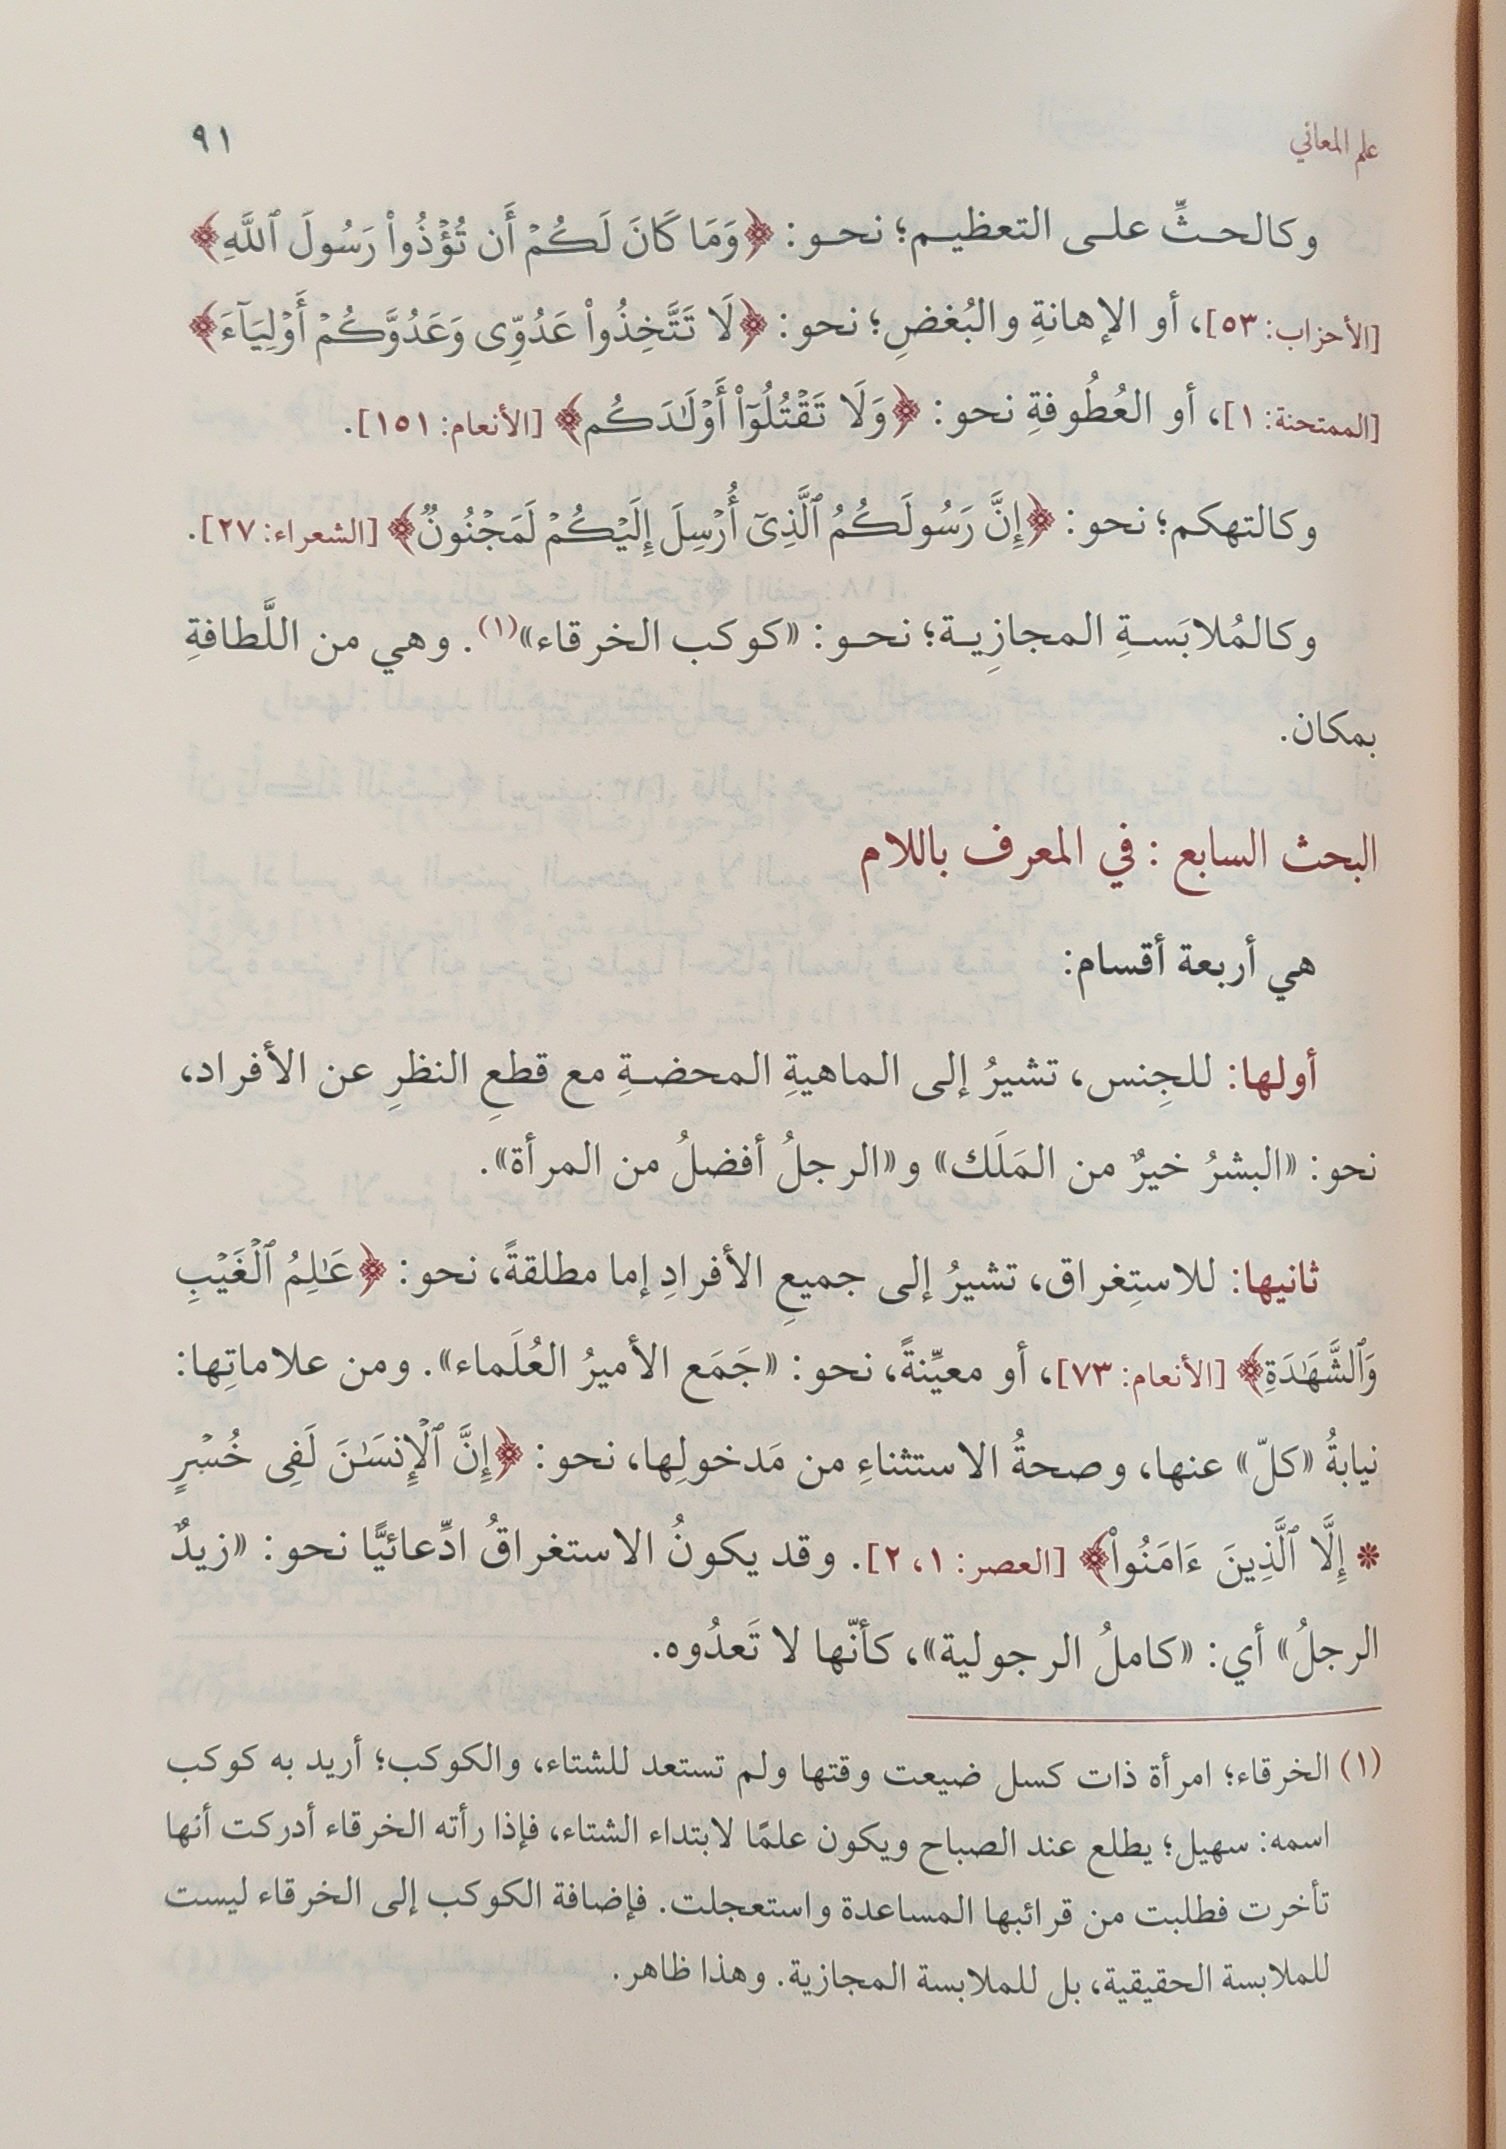 علم المعاني
٩١
وكالحثِّ على التعظيم؛ نحو: ﴿وَمَا كَانَ لَكُمۡ أَن تُؤۡذُواْ رَسُولَ ٱللَّهِ﴾
[الأحزاب: ٥٣]، أو الإهانةِ والبُغضِ؛ نحو: ﴿لَا تَتَّخِذُواْ عَدُوِّى وَعَدُوَّكُمۡ أَوۡلِيَآءَ﴾
[الممتحنة: ١]، أو العُطُوفةِ نحو: ﴿وَلَا تَقۡتُلُوٓاْ أَوۡلَٰدَكُم﴾ [الأنعام: ١٥١].
وكالتهكم؛ نحو: ﴿إِنَّ رَسُولَكُمُ ٱلَّذِىٓ أُرۡسِلَ إِلَيۡكُمۡ لَمَجۡنُونٌ﴾ [الشعراء: ٢٧].
وكالمُلابَسةِ المجازِية؛ نحو: «كوكب الخرقاء»(١). وهي من اللَّطافةِ
بمكان.
البحث السابع : في المعرف باللام
هي أربعة أقسام:
أولها: للجِنس، تشيرُ إلى الماهيةِ المحضةِ مع قطعِ النظرِ عن الأفراد،
نحو: «البشرُ خيرٌ من المَلَك» و«الرجلُ أفضلُ من المرأة».
ثانيها: للاستِغراق، تشيرُ إلى جميعِ الأفرادِ إما مطلقةً، نحو: ﴿عَٰلِمُ ٱلۡغَيۡبِ
وَٱلشَّهَٰدَةِ﴾ [الأنعام: ٧٣]، أو معيِّنةً، نحو: «جَمَع الأميرُ العُلَماء». ومن علاماتِها:
نيابةُ «كلّ» عنها، وصحةُ الاستثناءِ من مَدخولِها، نحو: ﴿إِنَّ ٱلۡإِنسَٰنَ لَفِى خُسۡرٍ
* إِلَّا ٱلَّذِينَ ءَامَنُواْ﴾ [العصر: ١، ٢]. وقد يكونُ الاستغراقُ ادِّعائيًّا نحو: «زيدٌ
الرجلُ» أي: «كاملُ الرجولية»، كأنّها لا تَعدُوه.
(١) الخرقاء؛ امرأة ذات كسل ضيعت وقتها ولم تستعد للشتاء، والكوكب؛ أريد به كوكب
اسمه: سهيل؛ يطلع عند الصباح ويكون علمًا لابتداء الشتاء، فإذا رأته الخرقاء أدركت أنها
تأخرت فطلبت من قرائبها المساعدة واستعجلت. فإضافة الكوكب إلى الخرقاء ليست
للملابسة الحقيقية، بل للملابسة المجازية. وهذا ظاهر.